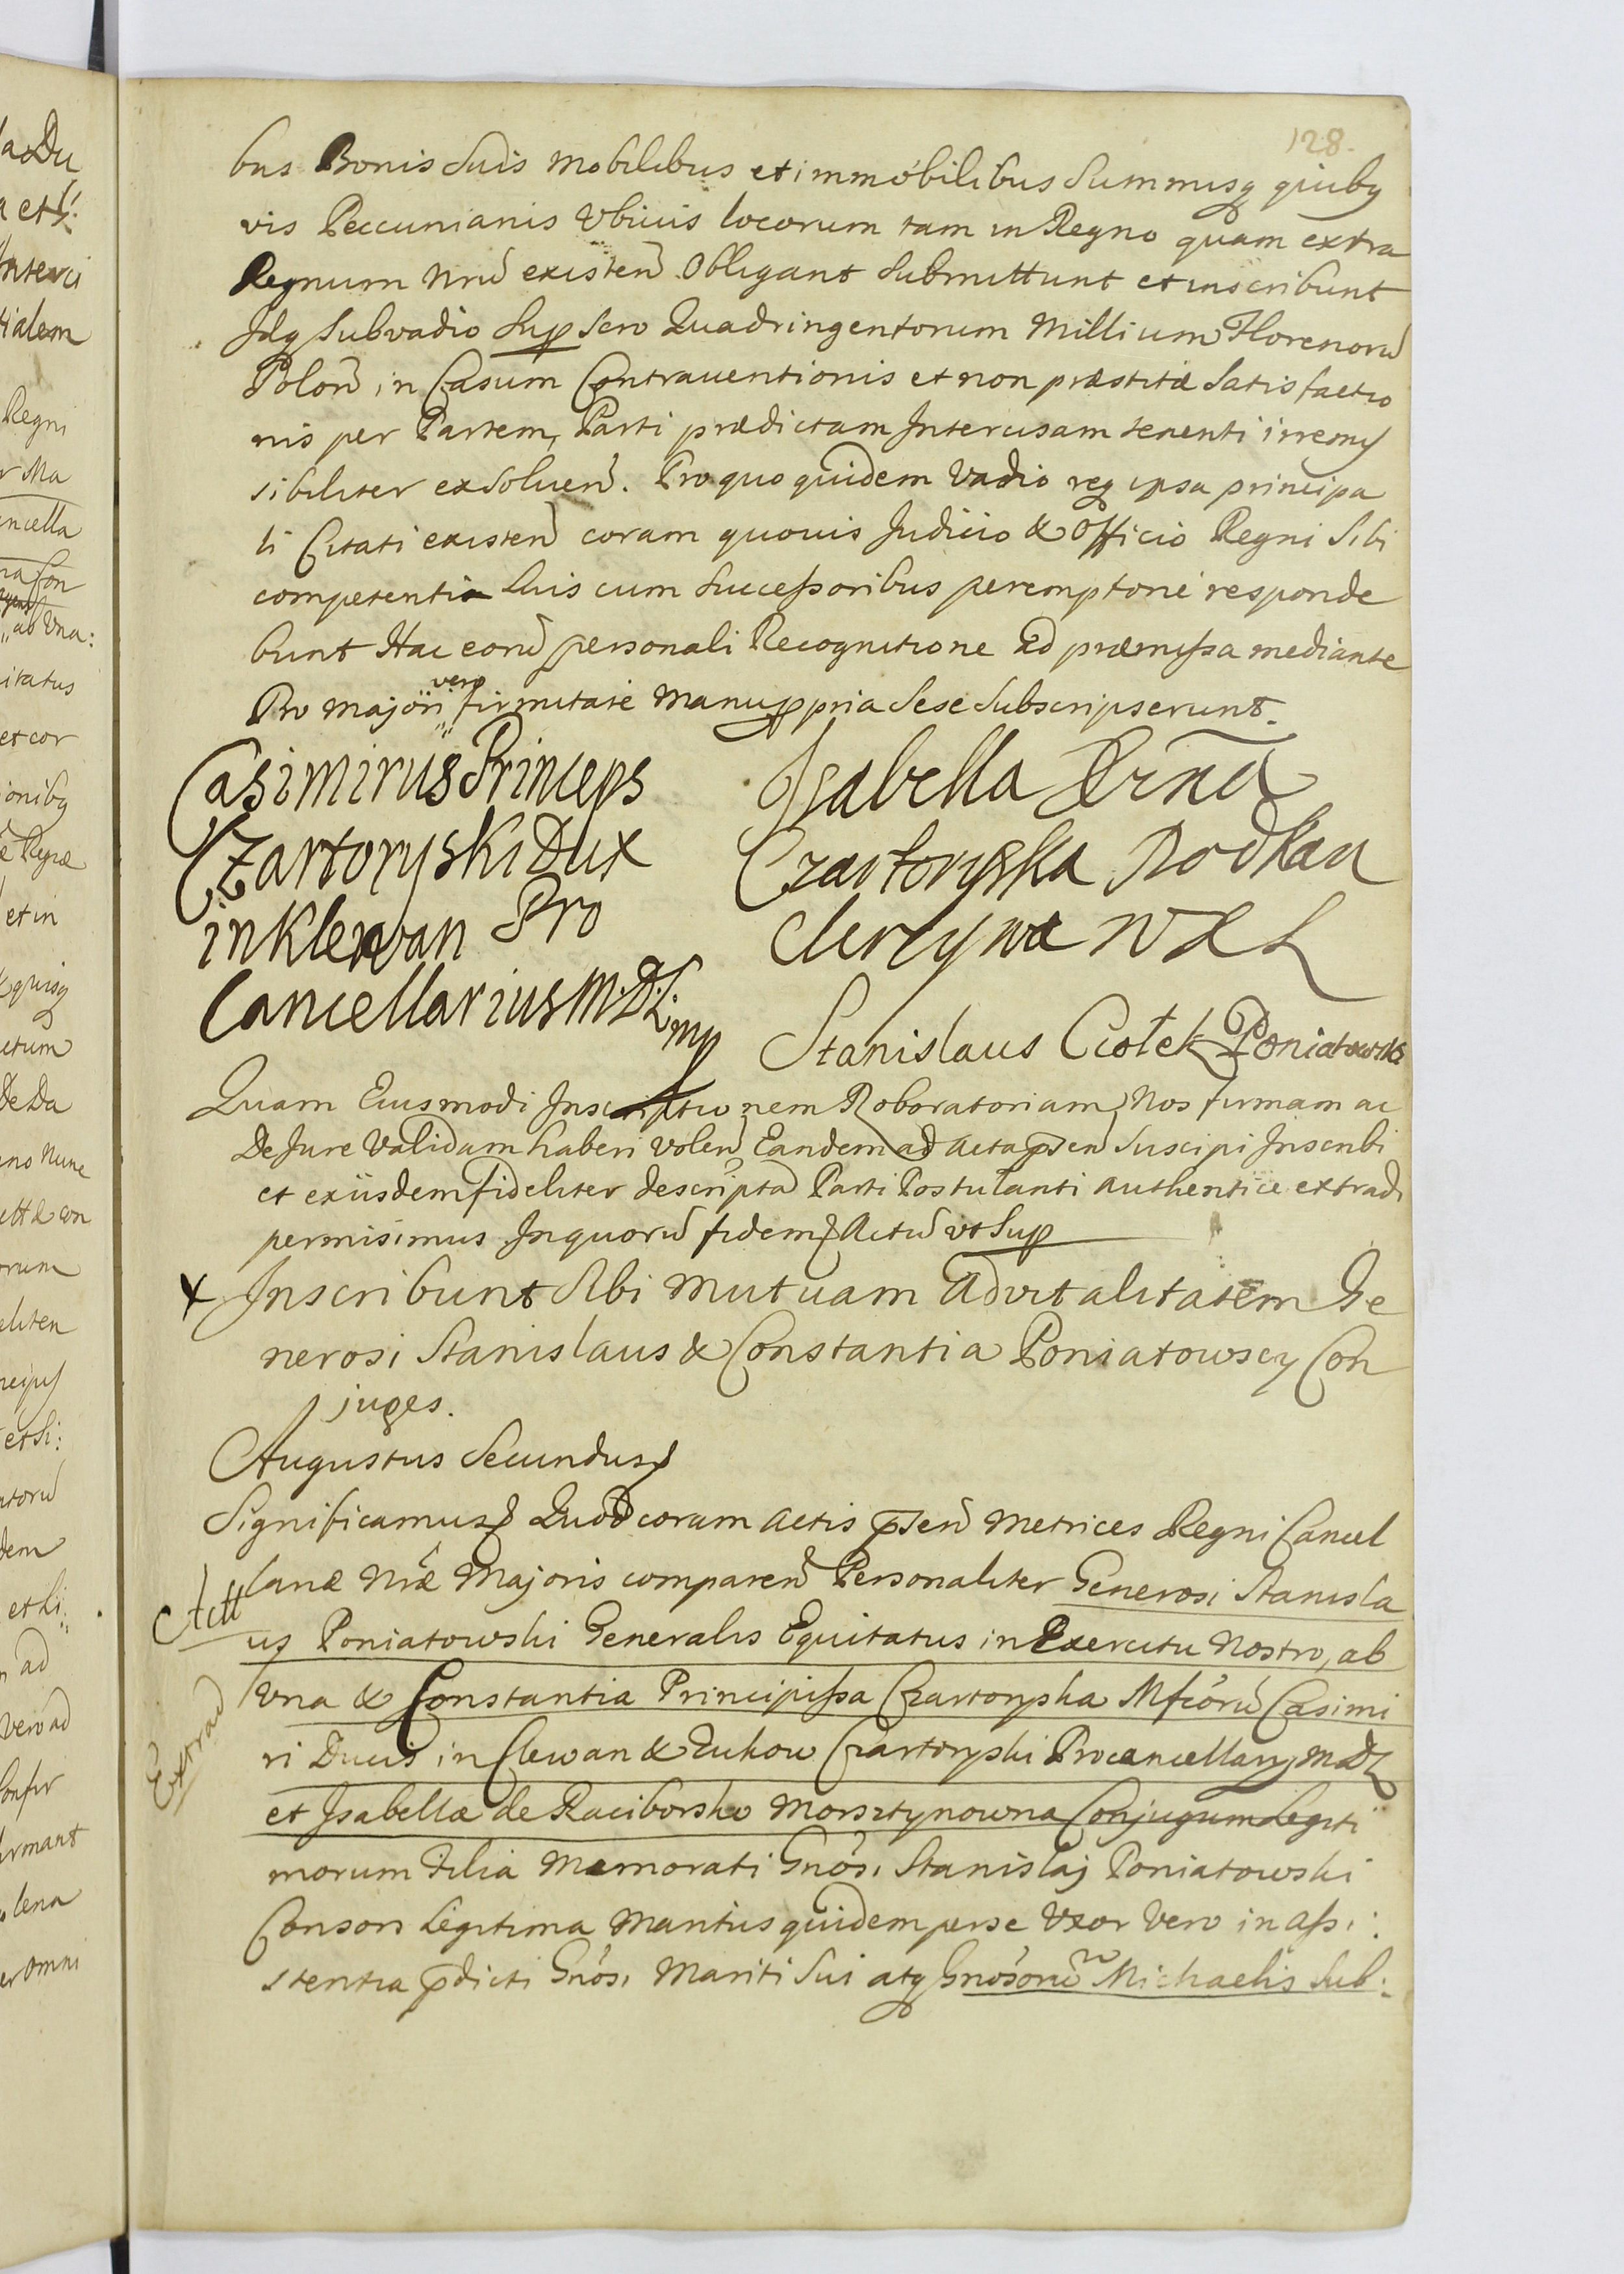 128.
bus Bonis Suis Mobilibus et immobilibus Summisq quibq
vis Peccuniariis Vbiuis locorum tam in Regno quam extra
Regnum Nrũ existen Obligant Submittunt et inscribunt
Idq Subvadio Supscro Quadringentorum Millium Florenorũ
Polon in Casum Contrauentionis et non præstitæ Satisfactio
nis per Partem, Parti prædictam Intercisam tenenti irremis
sibiliter exsoluen. Pro quo quidem Vadio req ipsa principa
li Citati existen coram quouis Judicio & Officio Regni Sibi
competentia Suis cum Successoribus peremptorie responde
bunt Hac eorũ personali Recognitione ad præmissa mediante
vero
Pro majori firmitate Manu ppria Sese Subscripserunt.
Casimirus Princeps
Czartoryski Dux
in Klewan Pro
Cancellarius M.D.L. mp
Isabella
Czartoryska Podkan
clerzyna W X L
Stanislaus Ciołek Poniatowski
Quam Eiusmodi Inscriptionem Roboratoriam Nos firmam ac
De Jure Validam haberi volen Eandem ad Acta psen Suscipi Inscribi
et exiisdem fideliter descripta Parti Postulanti Authentice extradi
permisimus In quorũ fidem Actũ vt Sup
X Inscribunt Sibi Mutuam Advitalitatem Ge
nerosi Stanislaus & Constantia Poniatowscy Con
juges.
Augustus Secundus
Significamus Quod coram Actis psen Metrices Regni Cancel
lariæ Nræ Majoris comparen Personaliter Generosi Stanisla
us Poniatowski Generalis Equitatus in Exercitu Nostro, ab
Vna & Constantia Principissa Czartoryska Mfcorũ Casimi
Extrad
ri Ducis in Clewan & Zukow Czartoryski Procancellarij MDL
et Isabellæ de Raciborsko Morsztynowna Conjugum Legiti
morum Filia Memorati Gnosi Stanislaj Poniatowski
Consors Legitima Maritus quidem per se Vxor Vero in assi:
stentia pdicti Gnosi Mariti Sui atq Gnosorũ Michaelis Sub: